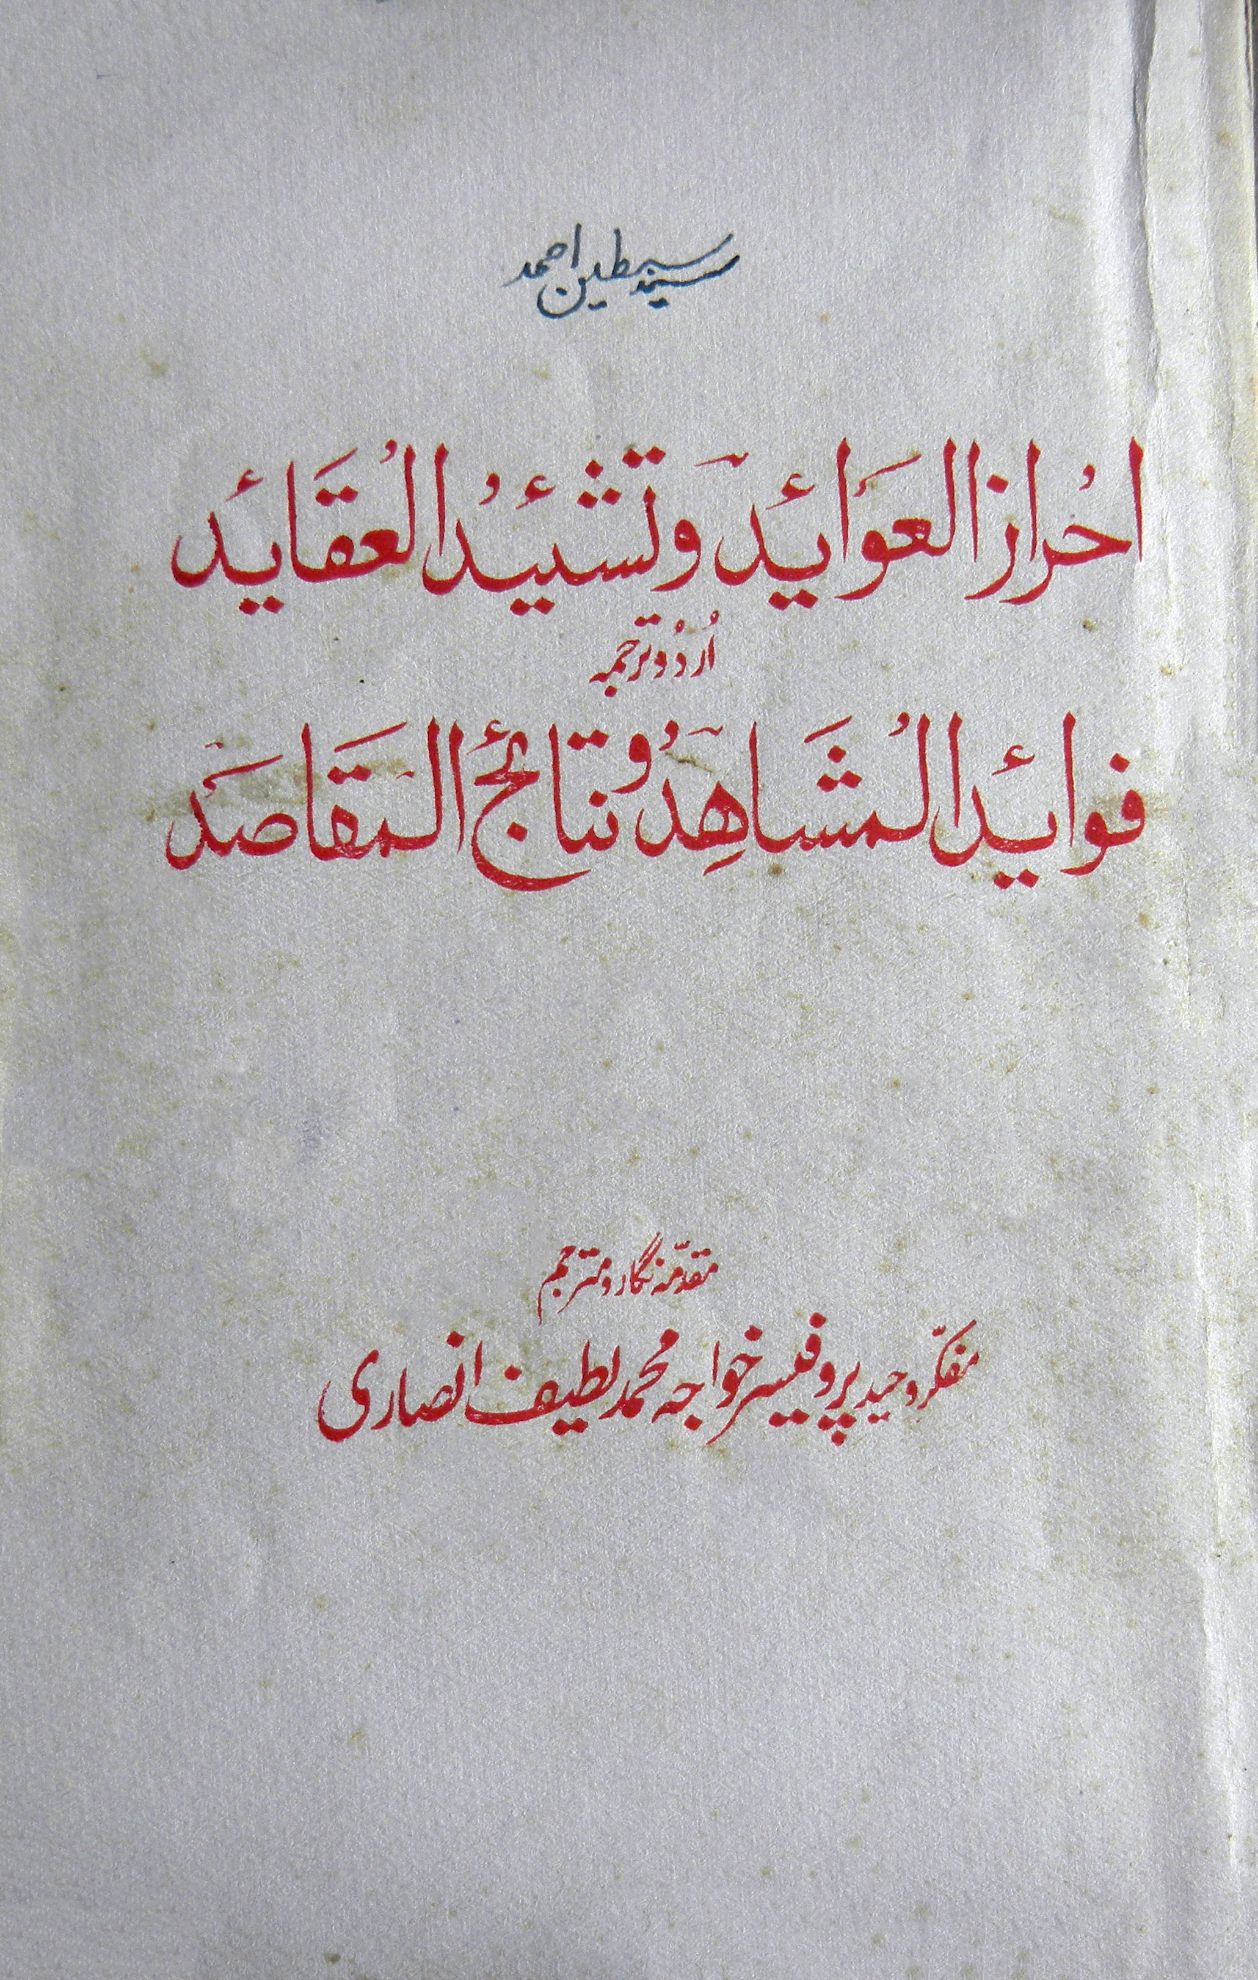 سید سبطین احمد
احراز العوائد و تشئید العقائد
اُردُو ترجمہ
فوائد المشاهد و نتائج المقاصد
مقدّمہ نگار و مترجم
مفکّر وحید پروفیسر خواجہ محمد لطیف انصاری